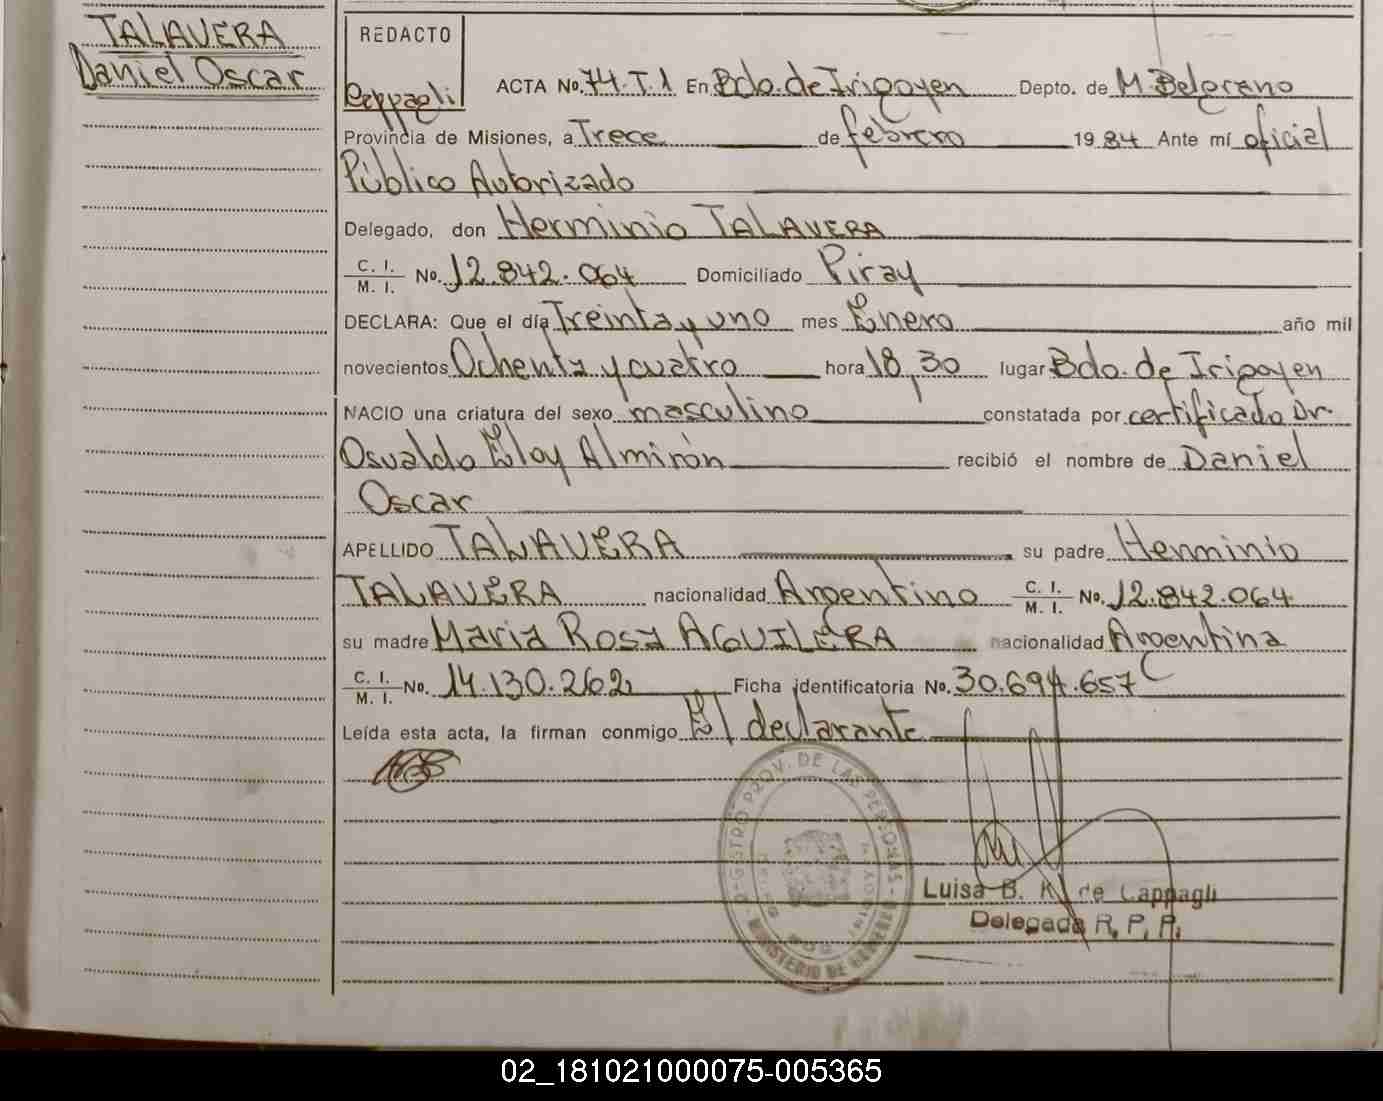 TALAVERA
Daniel Oscar
REDACTO
Cappagli
ACTA No. 74.T.1 En Bdo. de Irigoyen Depto. de M. Belgrano
Provincia de Misiones, a Trece de febrero 1984 Ante mí oficial
Público Autorizado
Delegado, don Herminio TALAVERA
C. I. / M. I. No. 12.842.064 Domiciliado Piray
DECLARA: Que el día Treinta y uno mes Enero año mil
novecientos Ochenta y cuatro hora 18,30 lugar Bdo. de Irigoyen
NACIO una criatura del sexo masculino constatada por certificado Dr.
Osvaldo Eloy Almirón recibió el nombre de Daniel
Oscar
APELLIDO TALAVERA su padre Herminio
TALAVERA nacionalidad Argentino C. I. / M. I. No. 12.842.064
su madre Maria Rosa AGUILERA nacionalidad Argentina
C. I. / M. I. No. 14.130.262 Ficha identificatoria No. 30.694.657
Leída esta acta, la firman conmigo El declarante
REGISTRO PROV. DE LAS PERSONAS
MINISTERIO DE GOBIERNO
Luisa B. K. de Cappagli
Delegada R. P. P.
02_181021000075-005365